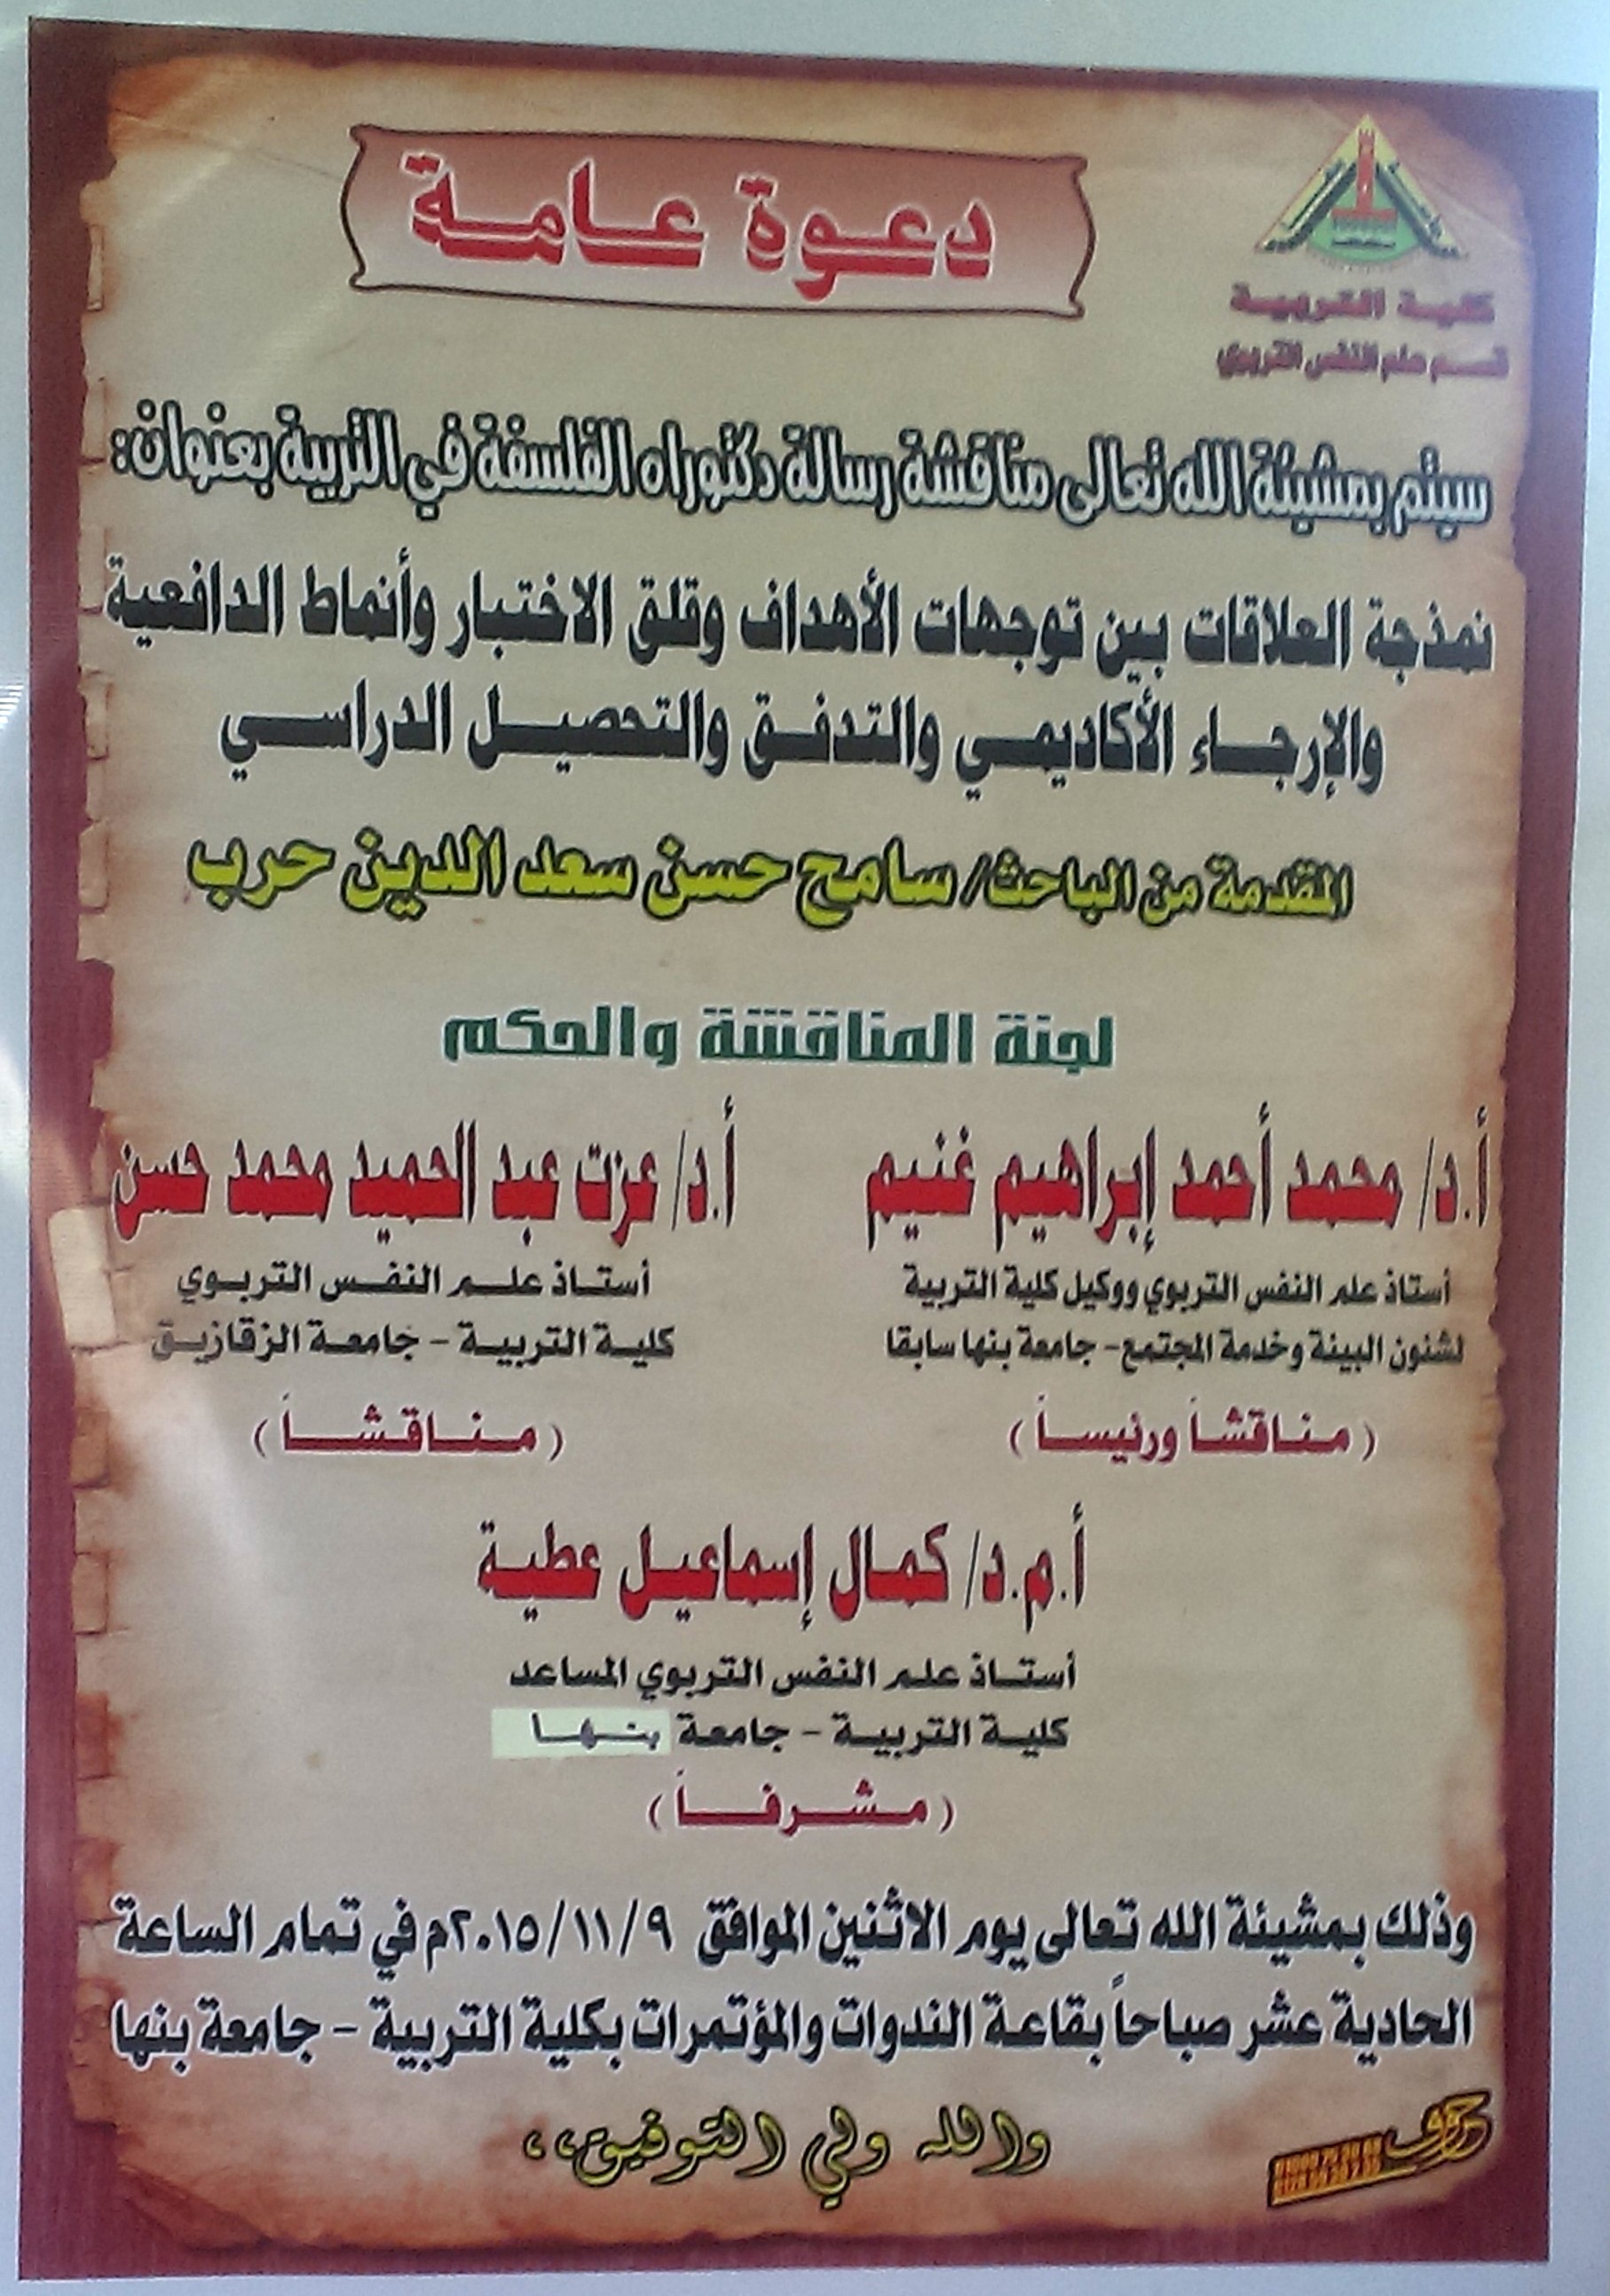 دعوة عامة
كلية التربية
قسم علم النفس التربوي
سيتم بمشيئة الله تعالى مناقشة رسالة دكتوراه الفلسفة في التربية بعنوان:
نمذجة العلاقات بين توجهات الأهداف وقلق الاختبار وأنماط الدافعية
والإرجاء الأكاديمي والتدفق والتحصيل الدراسي
المقدمة من الباحث/ سامح حسن سعد الدين حرب
لجنة المناقشة والحكم
أ.د/ محمد أحمد إبراهيم غنيم
أستاذ علم النفس التربوي ووكيل كلية التربية
لشئون البيئة وخدمة المجتمع - جامعة بنها سابقا
( مناقشاً ورئيساً )
أ.د/ عزت عبد الحميد محمد حسن
أستاذ علم النفس التربوي
كلية التربية - جامعة الزقازيق
( مناقشاً )
أ.م.د/ كمال إسماعيل عطية
أستاذ علم النفس التربوي المساعد
كلية التربية - جامعة بنها
( مشرفاً )
وذلك بمشيئة الله تعالى يوم الاثنين الموافق ٢٠١٥/١١/٩م في تمام الساعة
الحادية عشر صباحاً بقاعة الندوات والمؤتمرات بكلية التربية - جامعة بنها
والله ولي التوفيق،،
حروف